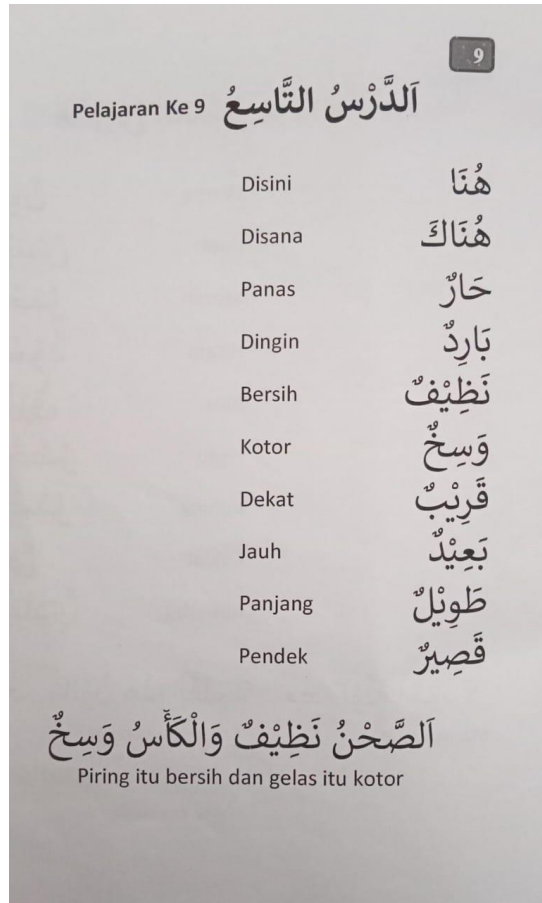 ٩
Pelajaran Ke 9 اَلدَّرْسُ التَّاسِعُ
Disini هُنَا
Disana هُنَاكَ
Panas حَارٌ
Dingin بَارِدٌ
Bersih نَظِيْفٌ
Kotor وَسِخٌ
Dekat قَرِيْبٌ
Jauh بَعِيْدٌ
Panjang طَوِيْلٌ
Pendek قَصِيرٌ
اَلصَّحْنُ نَظِيْفٌ وَالْكَأَسُ وَسِخٌ
Piring itu bersih dan gelas itu kotor